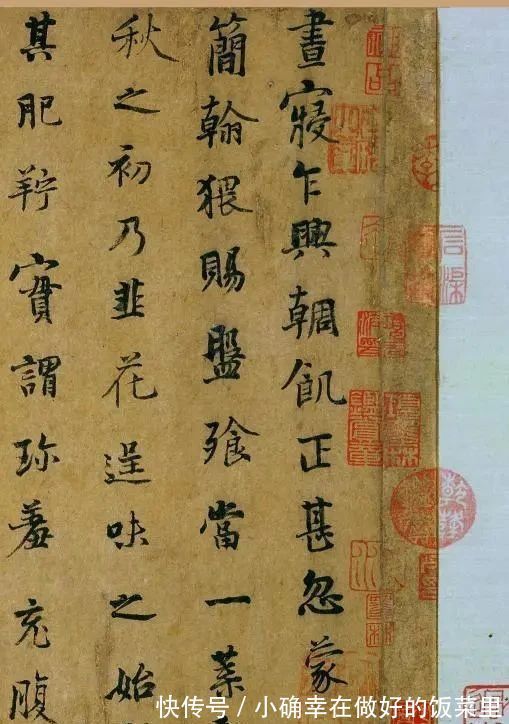 晝寢乍興輖飢正甚忽蒙
簡翰猥賜盤飧當一葉
秋之初乃韭花逞味之始
其肥羜實謂珍羞充腹
快传号 / 小确幸在做好的饭菜里